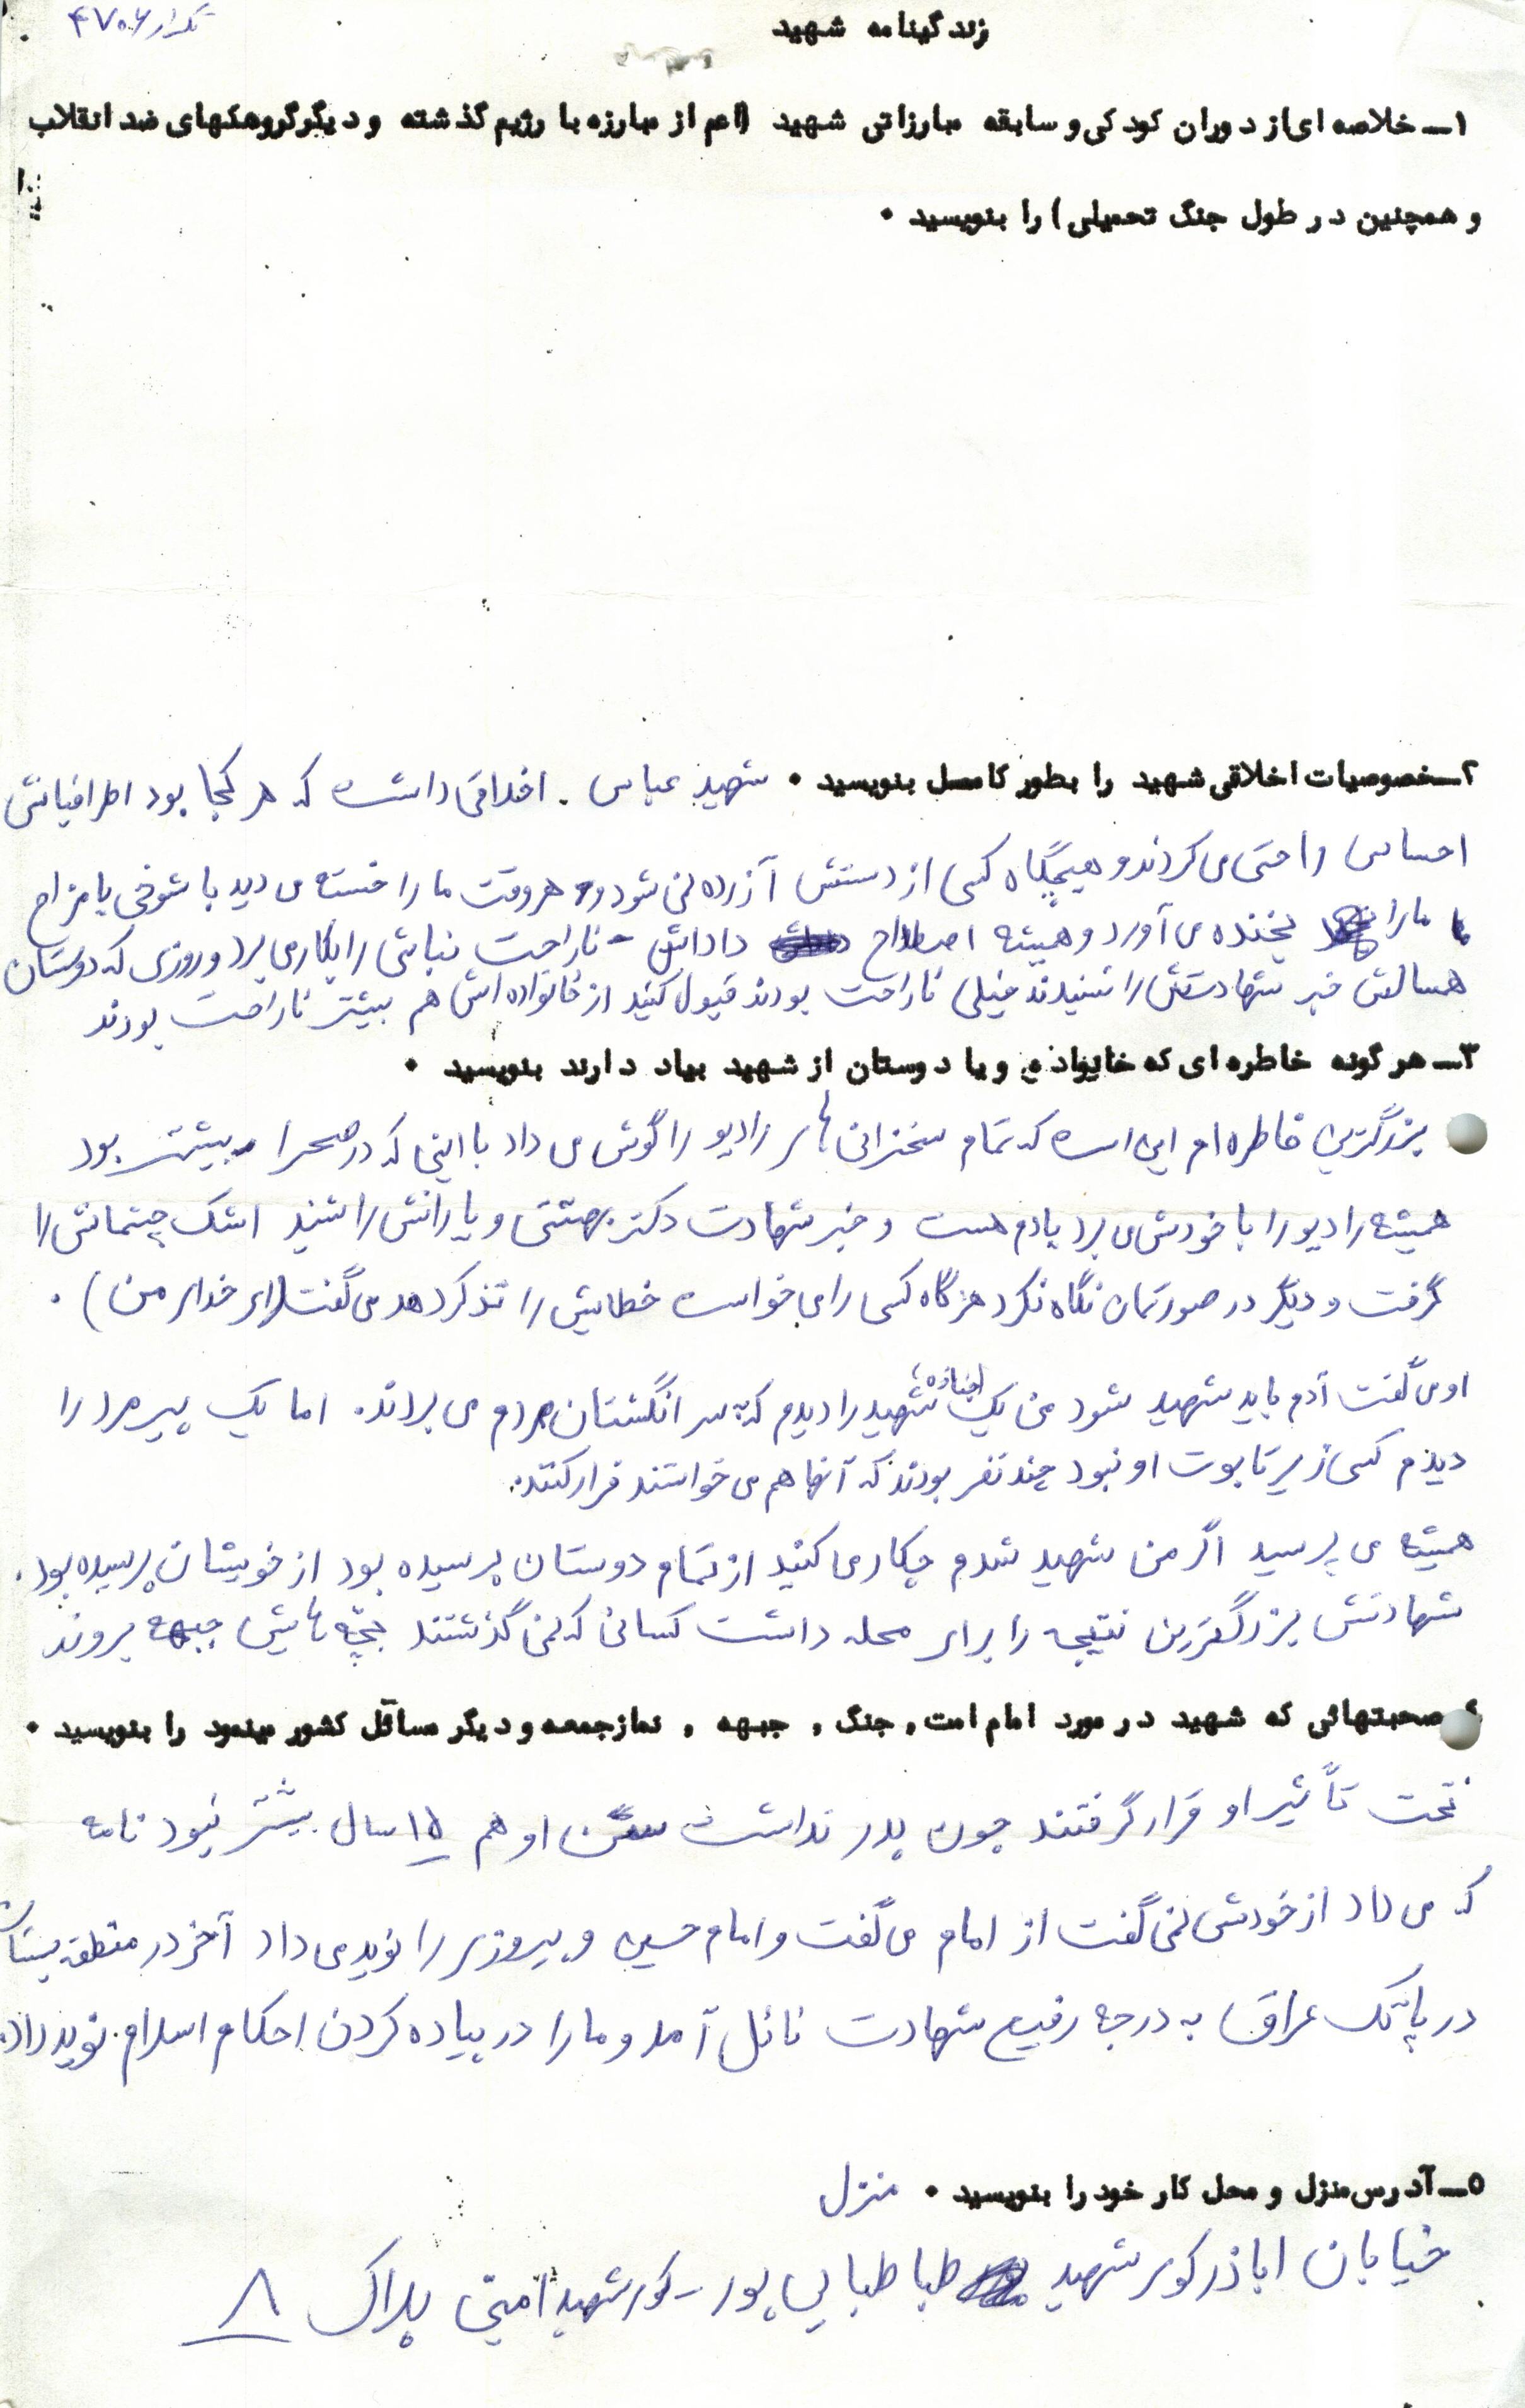 تکرار ۴۷۰۶
زندگینامه شهید
۱ـ خلاصه ای از دوران کودکی و سابقه مبارزاتی شهید (اعم از مبارزه با رژیم گذشته و دیگر گروهکهای ضد انقلاب
و همچنین در طول جنگ تحمیلی) را بنویسید •
۲ـ خصوصیات اخلاقی شهید را بطور کامل بنویسید • شهید عباس . اخلاقی داشت که هر کجا بود اطرافیانش
احساس راحتی می کردند و هیچگاه کسی از دستش آزرده نمی شود و هر وقت ما را خسته می دید با شوخی یا مزاح
ما را بخنده می آورد و همیشه اصطلاح داداش - ناراحت نباش را بکار می برد و روزی که دوستان
همسالش خبر شهادتش را شنیدند خیلی ناراحت بودند قبول کنید از خانواده اش هم بیشتر ناراحت بودند
۳ـ هر گونه خاطره ای که خانواده و یا دوستان از شهید بیاد دارند بنویسید •
بزرگترین خاطره ام این است که تمام سخنرانی های رادیو را گوش می داد با اینی که در صحرا بیشتر بود
همیشه رادیو را با خودش می برد یادم هست و خبر شهادت دکتر بهشتی و یارانش را شنید اشک چشمانش را
گرفت و دیگر در صورتمان نگاه نکرد هرگاه کسی را می خواست خطایش را تذکر دهد می گفت (ای خدای من) .
او می گفت آدم باید شهید شود من یک (جنازه) شهید را دیدم که سر انگشتان مردم می براند. اما یک پیرمرد را
دیدم کسی زیر تابوت او نبود چند نفر بودند که آنها هم می خواستند فرار کنند.
همیشه می پرسید اگر من شهید شدم چکار می کنید از تمام دوستان پرسیده بود از خویشان پرسیده بود.
شهادتش بزرگترین نتیجه را برای محله داشت کسانی که نمی گذشتند بچه هایش جبهه بروند
صحبتهائی که شهید در مورد امام امت ، جنگ ، جبهه ، نمازجمعه و دیگر مسائل کشور مینمود را بنویسید •
تحت تأثیر او قرار گرفتند چون پدر نداشت سن او هم ۱۵ سال بیشتر نبود نامه
که می داد از خودش نمی گفت از امام می گفت و امام حسین و پیروزی را نوید می داد آخر در منطقه بستان
در پاتک عراق به درجه رفیع شهادت نائل آمد و ما را در پیاده کردن احکام اسلام نوید داد.
۵ـ آدرس منزل و محل کار خود را بنویسید • منزل
خیابان اباذر کوی شهید طباطبایی پور - کوی شهید امینی پلاک ۸